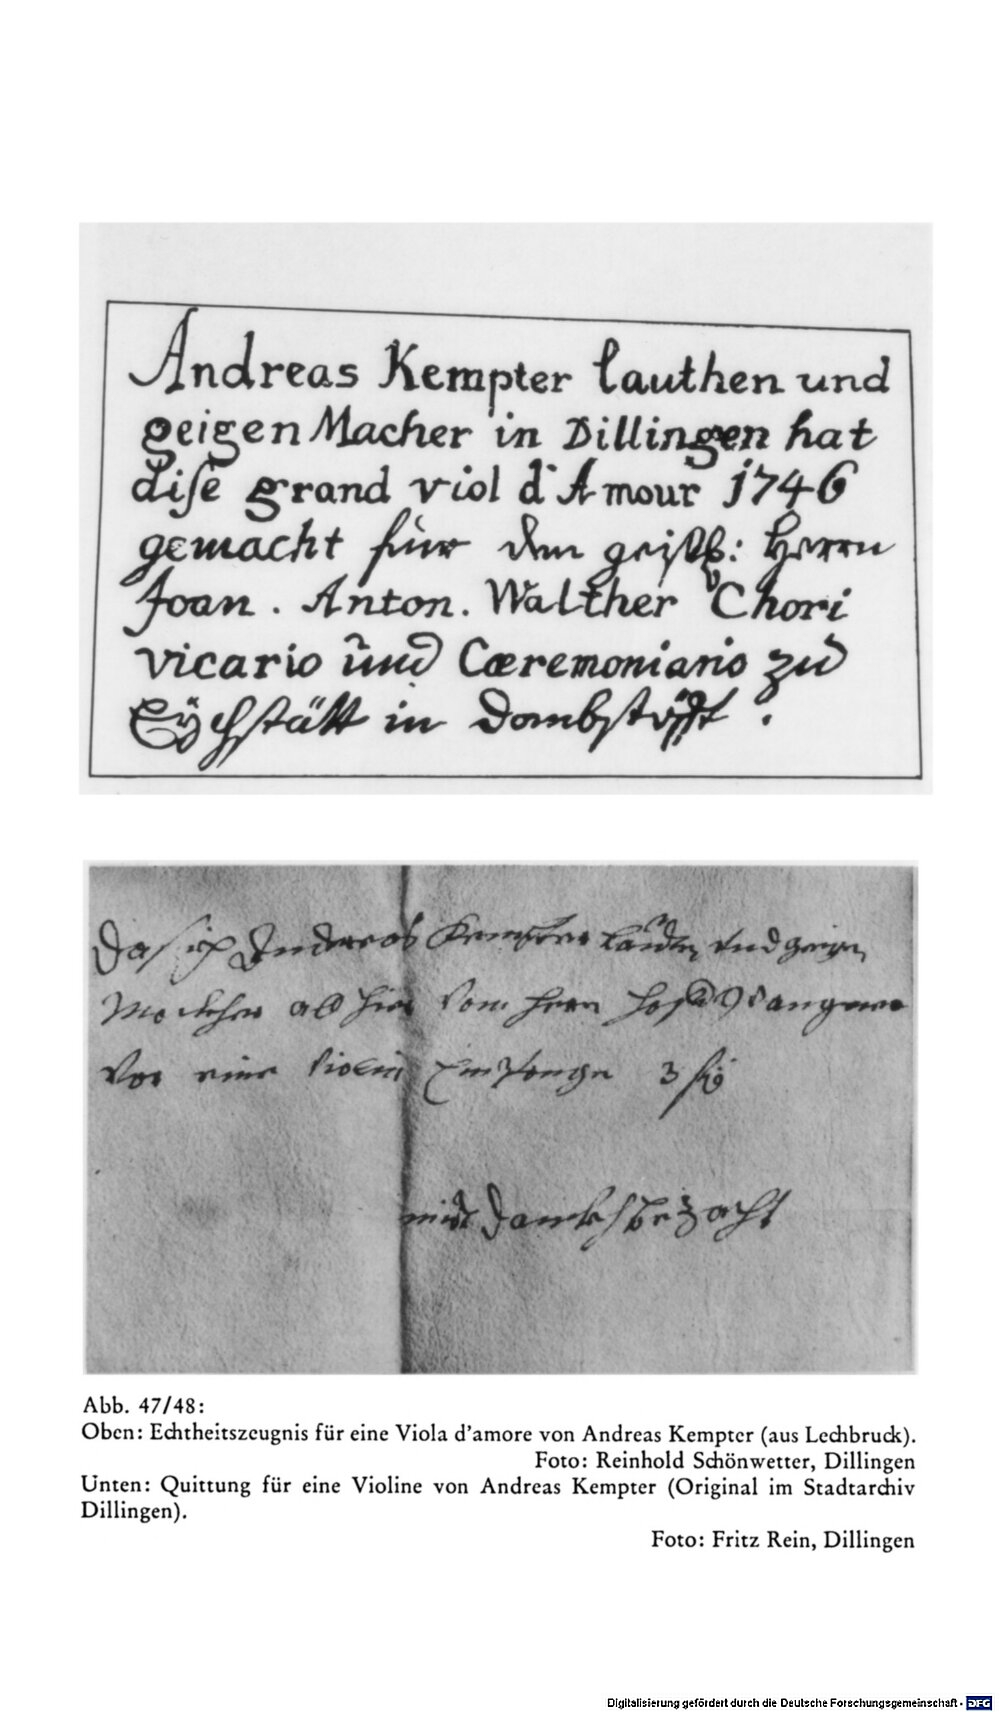 Andreas Kempter lauthen und
geigen Macher in Dillingen hat
diſe grand viol d'Amour 1746
gemacht für den geistl: Herrn
Joan. Anton. Walther Chori
vicario und Cæremoniario zu
Eÿchstätt in Dombstüfft.
Das ich Andreas Kempter lauten und geigen
Macher als hier vom Herrn
Vor eine Violin Empfange 3
mit Danckh bezacht
Abb. 47/48:
Oben: Echtheitszeugnis für eine Viola d'amore von Andreas Kempter (aus Lechbruck).
Foto: Reinhold Schönwetter, Dillingen
Unten: Quittung für eine Violine von Andreas Kempter (Original im Stadtarchiv
Dillingen).
Foto: Fritz Rein, Dillingen
Digitalisierung gefördert durch die Deutsche Forschungsgemeinschaft - DFG